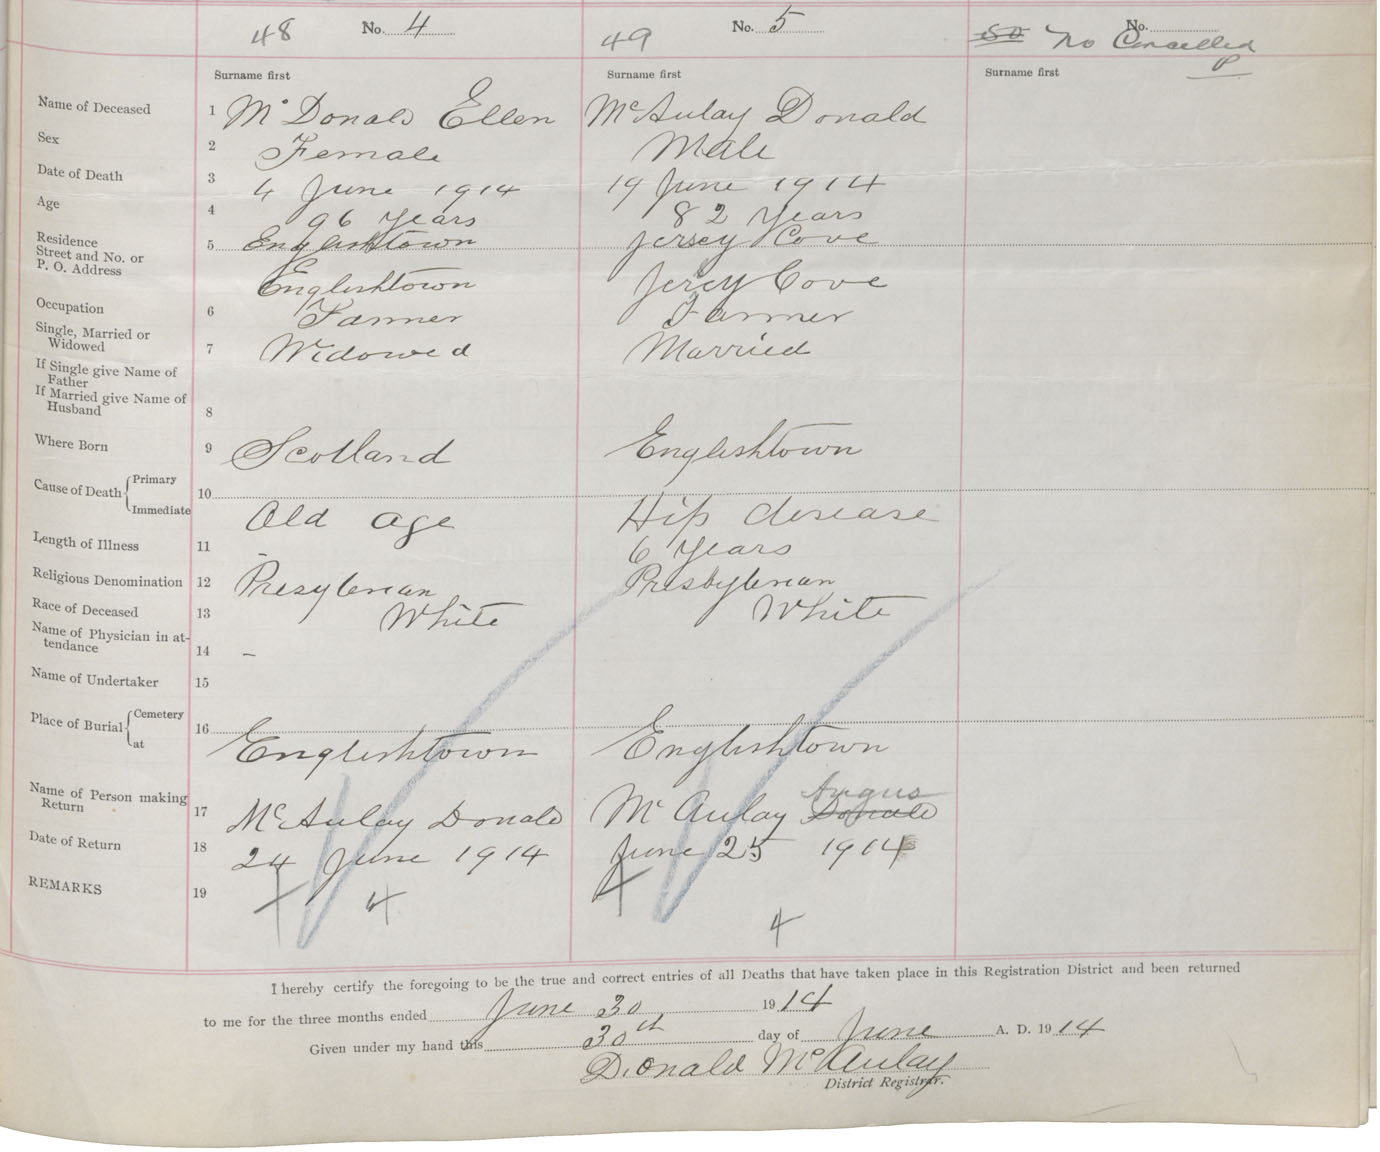 48 No. 4
49 No. 5
50 No. No Cancelled
P
Surname first Surname first Surname first
Name of Deceased 1 McDonald Ellen McAulay Donald
Sex 2 Female Male
Date of Death 3 4 June 1914 19 June 1914
Age 4 96 Years 82 Years
Residence 5 Englishtown Jersey Cove
Street and No. or
P. O. Address Englishtown Jercy Cove
Occupation 6 Farmer Farmer
Single, Married or
Widowed 7 Widowed Married
If Single give Name of
Father
If Married give Name of
Husband 8
Where Born 9 Scotland Englishtown
Cause of Death { Primary 10
Immediate Old age Hip disease
Length of Illness 11 - 6 Years
Religious Denomination 12 Presyterian Presbyterian
Race of Deceased 13 White White
Name of Physician in at-
tendance 14 –
Name of Undertaker 15
Place of Burial { Cemetery 16
at Englishtown Englishtown
Name of Person making
Return 17 McAulay Donald McAulay Donald Angus
Date of Return 18 24 June 1914 June 25 1914
REMARKS 19
4 4
I hereby certify the foregoing to be the true and correct entries of all Deaths that have taken place in this Registration District and been returned
to me for the three months ended June 30 1914
Given under my hand this 30th day of June A. D. 1914
Donald McAulay
District Registrar.